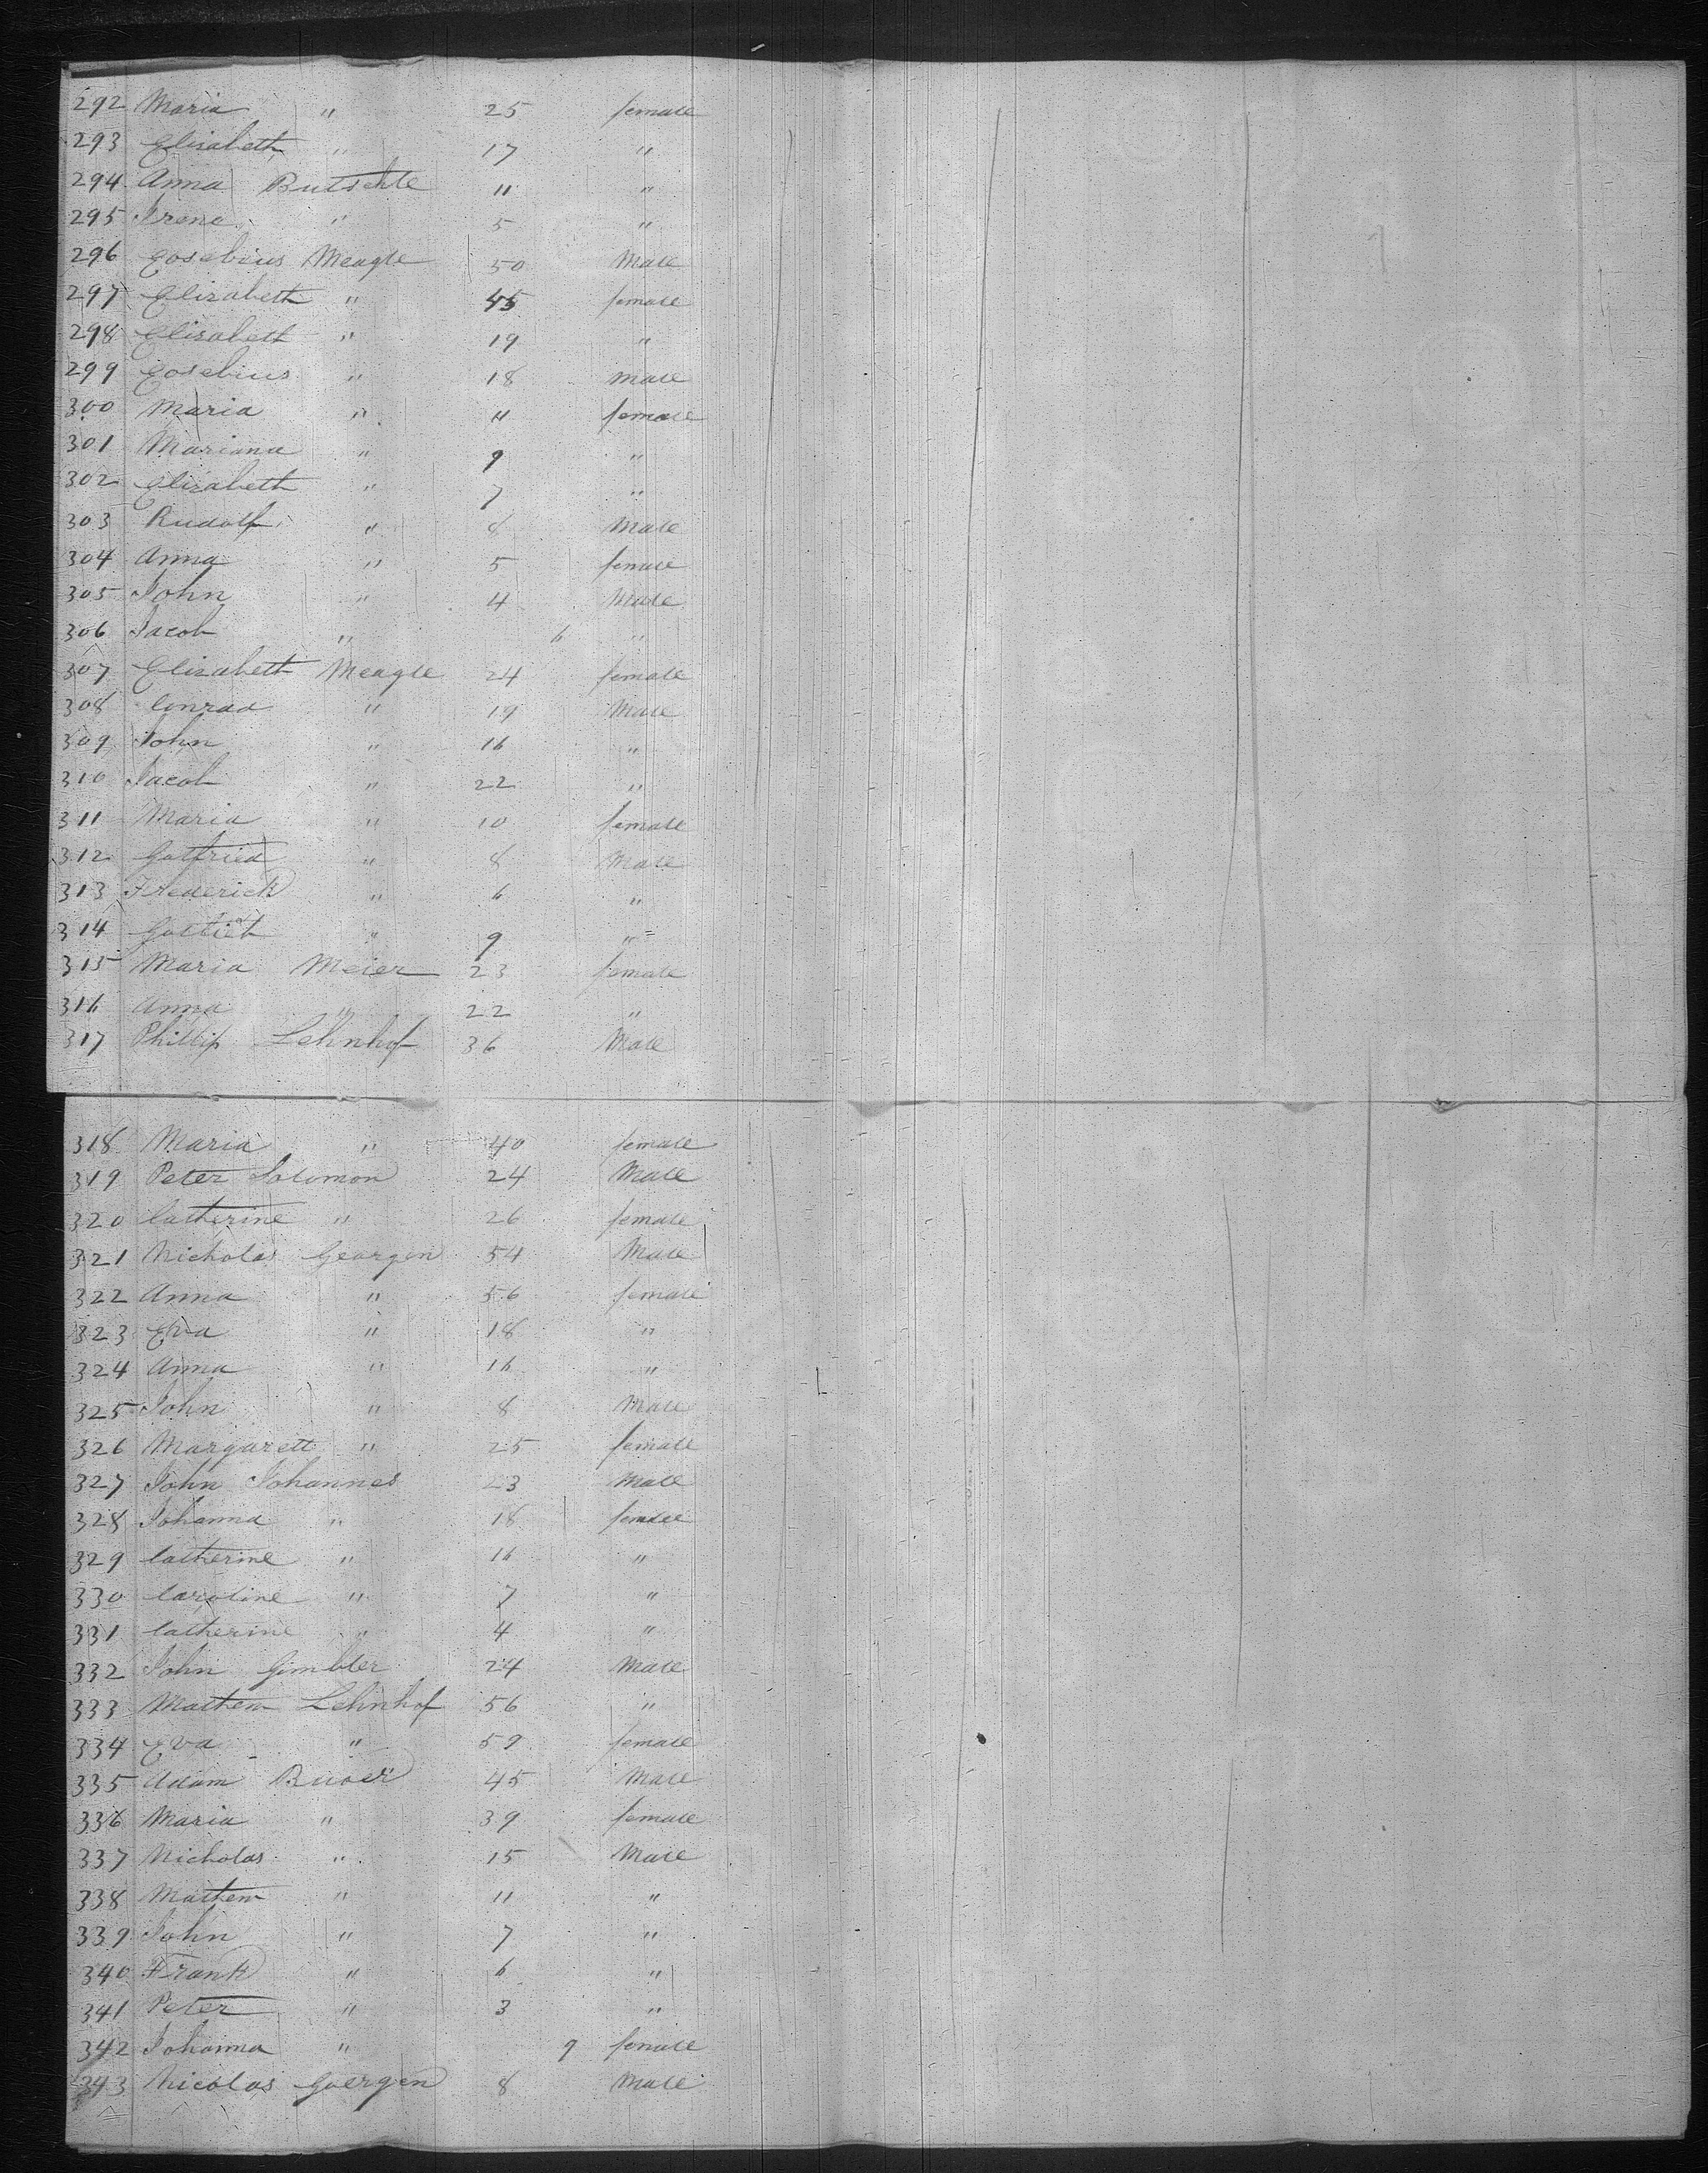 292 Maria " 25 female
293 Elisabeth " 17 "
294 Anna Butschle 11 "
295 Irena " 5 "
296 Eosebius Meagle 50 Male
297 Elisabeth " 45 female
298 Elisabeth " 19 "
299 Eosebius " 18 male
300 Maria " 11 female
301 Mariana " 9 "
302 Elisabeth " 7 "
303 Rudolf " 8 Male
304 Anna " 5 female
305 John " 4 Male
306 Jacob " 6 "
307 Elisabeth Meagle 24 female
308 Conrad " 19 Male
309 John " 16 "
310 Jacob " 22 "
311 Maria " 10 female
312 Gotfried " 8 Male
313 Frederick " 6 "
314 Gottieb " 9 "
315 Maria Meier 23 female
316 Anna " 22 "
317 Phillip Lehnhof 36 Male
318 Maria " 40 female
319 Peter Solomon 24 Male
320 Catherine " 26 female
321 Nicholas Georgen 54 Male
322 Anna " 56 female
323 Eva " 18 "
324 Anna " 16 "
325 John " 8 Male
326 Margarett " 25 female
327 John Johannes 23 Male
328 Johanna " 18 female
329 Catherine " 16 "
330 Caroline " 7 "
331 Catherine " 4 "
332 John Gimbler 24 Male
333 Mathew Lehnhof 56 "
334 Eva " 59 female
335 Adam 45 Male
336 Maria " 39 female
337 Nicholas " 15 Male
338 Mathew " 11 "
339 John " 7 "
340 Frank " 6 "
341 Peter " 3 "
342 Johanna " 9 female
343 Nicolas Goergen 8 Male